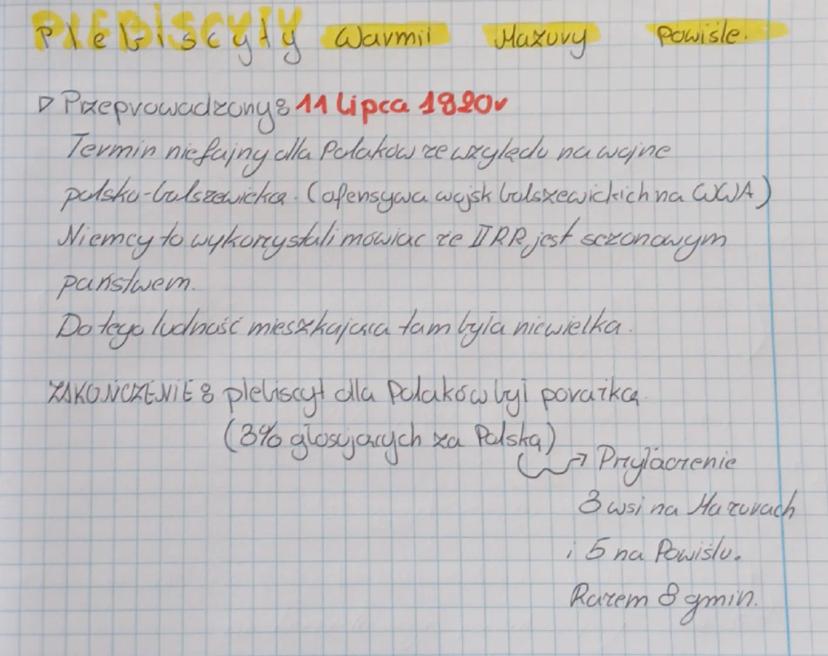 Plebiscyty Warmii Mazury Powiśle.
▷ Przeprowadzony: 11 Lipca 1920r
Termin niefajny dla Polaków ze względu na wojne
polsko-bolszewicką. (ofensywa wojsk bolszewickich na WWA)
Niemcy to wykorzystali mówiąc że II RP jest sezonowym
państwem.
Do tego ludność mieszkająca tam była niewielka.
ZAKOŃCZENIE: plebiscyt dla Polaków był porażką
(3% głosujących za Polską)
→ Przyłączenie
3 wsi na Mazurach
i 5 na Powiślu.
Razem 8 gmin.